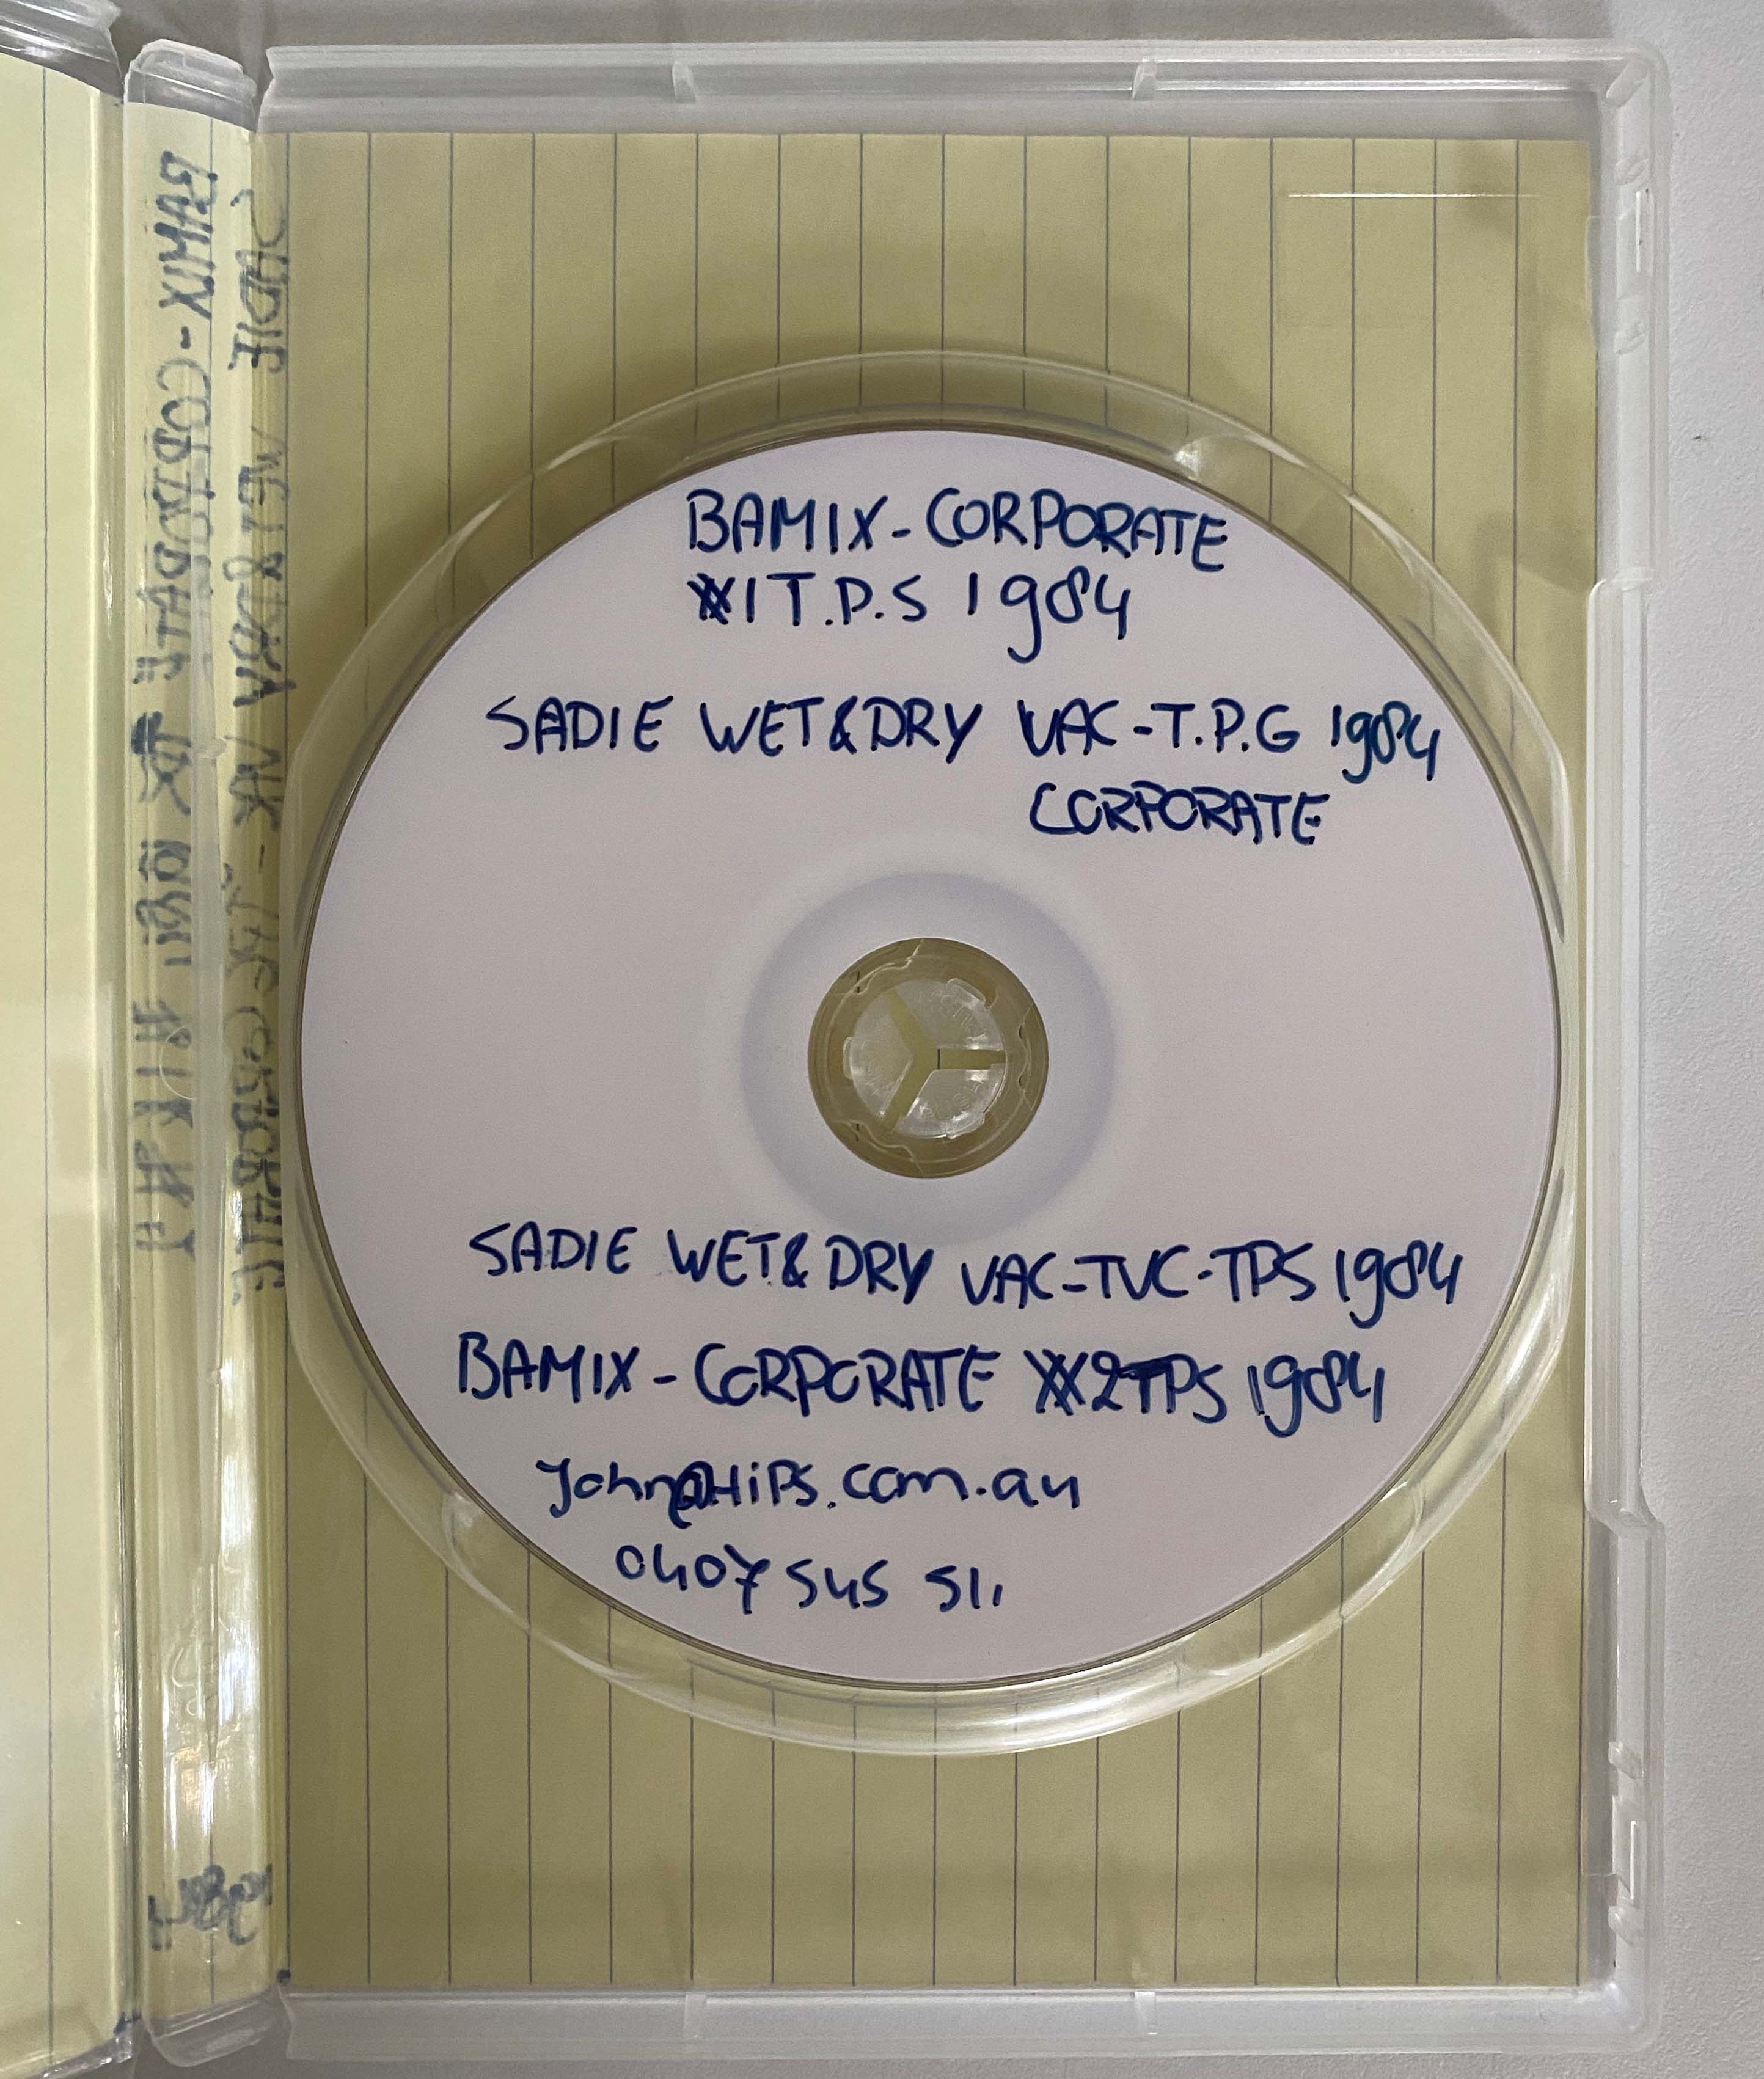 BAMIX-CORPORATE
#1 T.P.S 1984
SADIE WET&DRY VAC-T.P.G 1984
CORPORATE
SADIE WET&DRY VAC-TVC-TPS 1984
BAMIX-CORPORATE #2TPS 1984
John@HiPS.com.au
0407 545 511
BAMIX-CORPORATE
SADIE WET&DRY VAC - CORPORATE
1984